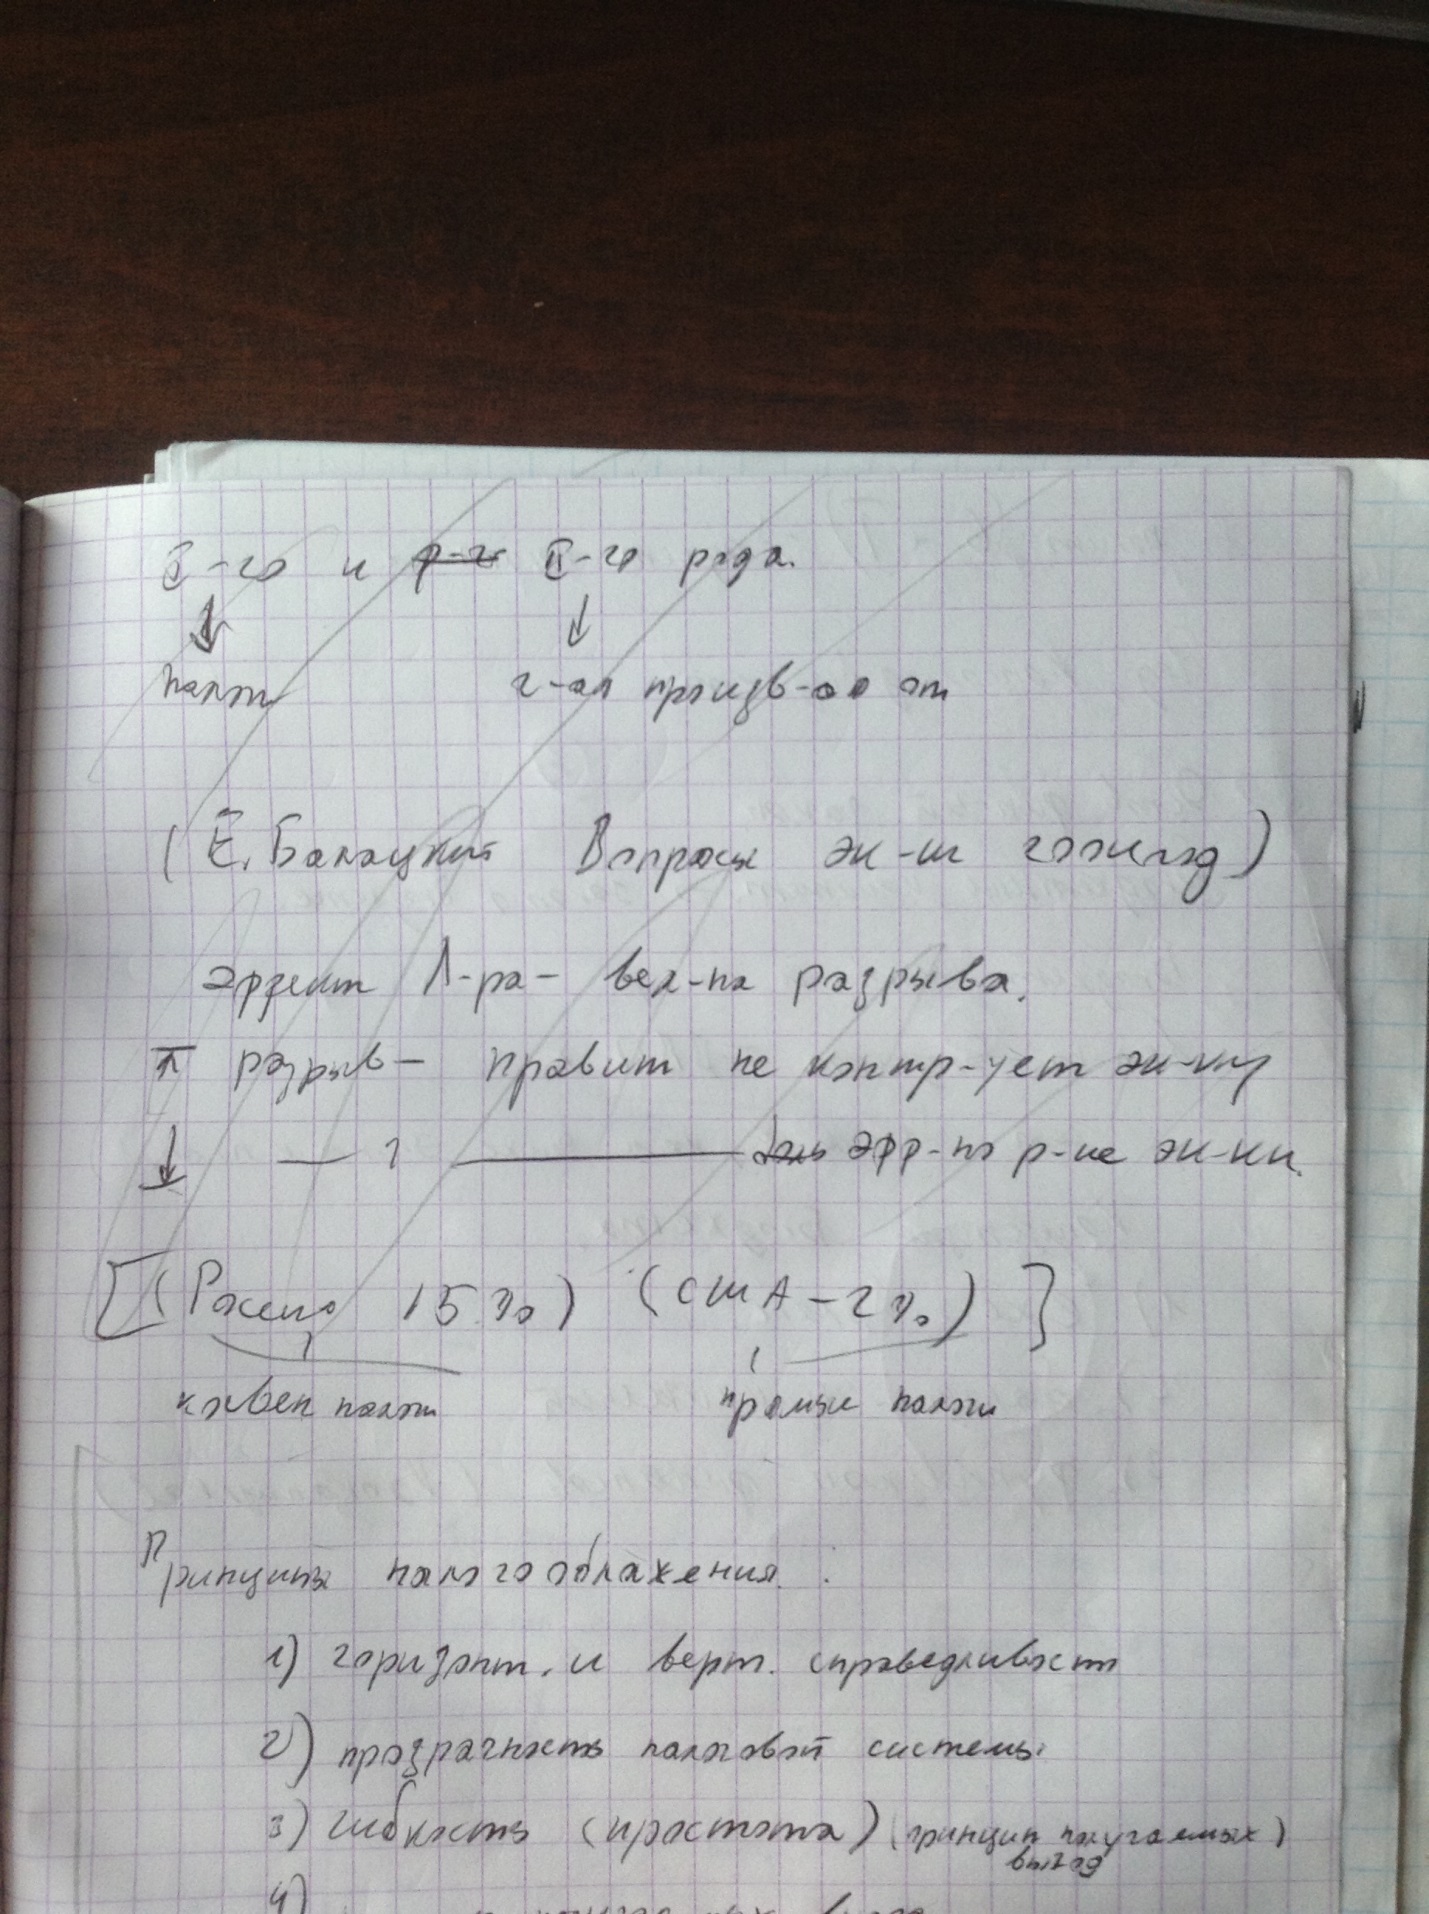 I-го и II-го рода.
налог 2-ая произв-ая от
(Е. Балацкий Вопросы эк-ки год)
эффект Л-ра - вел-на разрыва.
разрыв - правит не контр-ует эк-ку
эфф-но р-ие эк-ки.
[(Россия 15%) (США - 2%)]
косвен налог прямые налоги
Принципы налогообложения :
1) горизонт. и верт. справедливость
2) прозрачность налоговой системы
3) гибкость (простота) (принцип получаемых)
выгод
4)